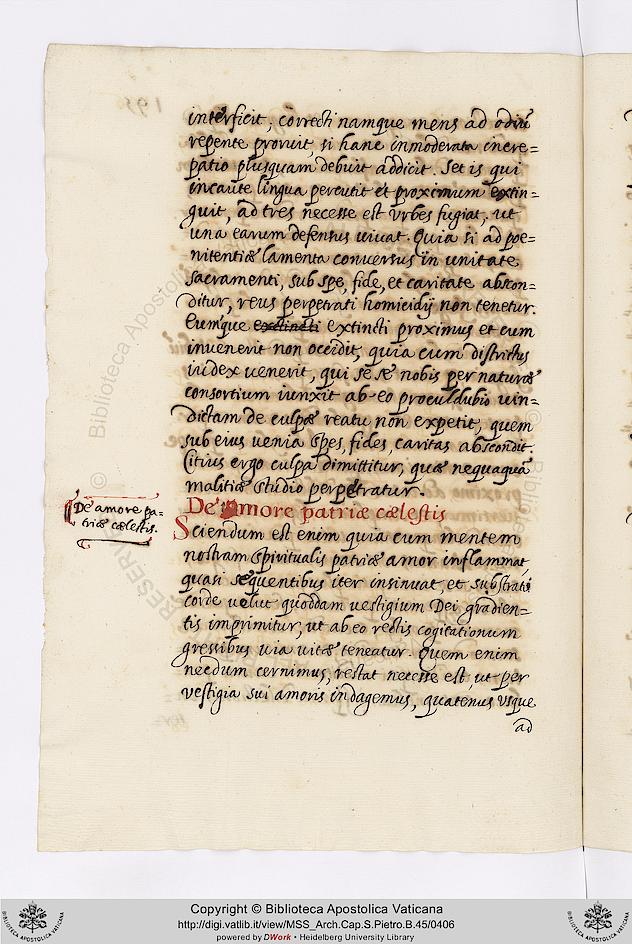 interficit, correcti namque mens ad odiũ
repente proruit si hanc inmoderata incre=
patio plusquam debuit addicit. Set is qui
incaute lingua percutit et proximum extin=
guit, ad tres necesse est vrbes fugiat, ut
una earum defensus uiuat. Quia si ad poe=
nitentiæ lamenta conuersus in unitate
sacramenti, sub spe, fide, et caritate abscon=
ditur, reus perpetrati homicidij non tenetur.
Eumque extincti extincti proximus et cum
inuenerit non occidit, quia cum districtus
iudex uenerit, qui se se nobis per naturæ
consortium iunxit ab eo proculdubio uin=
dictam de culpæ reatu non expetit, quem
sub eius uenia spes, fides, caritas abscondit.
Citius ergo culpa dimittitur, quæ nequaquã
malitiæ studio perpetratur.
De amore patriæ cælestis
De amore pa=
triæ cælestis.
Sciendum est enim quia cum mentem
nostram spiritualis patriæ amor inflammat,
quasi sequentibus iter insinuat, et substrato
corde uelut quoddam vestigium Dei gradien=
tis imprimitur, ut ab eo rectis cogitationum
gressibus uia uitæ teneatur. Quem enim
necdum cernimus, restat necesse est, ut per
vestigia sui amoris indagemus, quatenus vsque
ad
Copyright © Biblioteca Apostolica Vaticana
http://digi.vatlib.it/view/MSS_Arch.Cap.S.Pietro.B.45/0406
powered by DWork • Heidelberg University Library